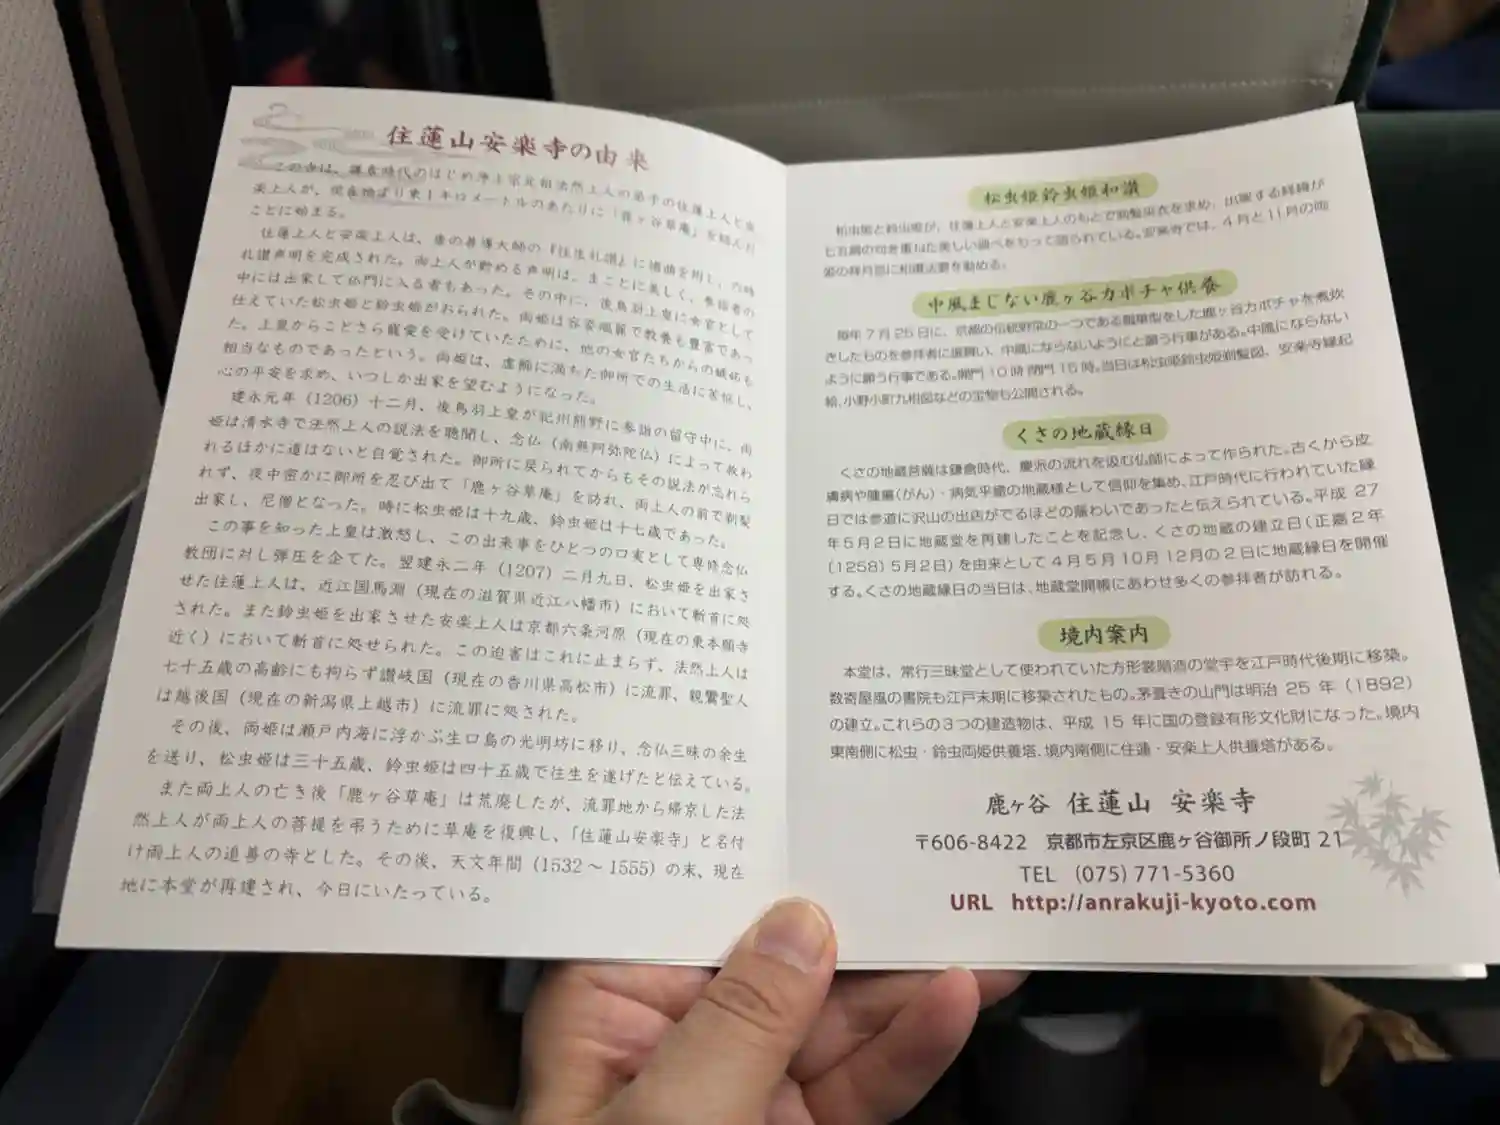 住蓮山安楽寺の由来
この寺は、鎌倉時代のはじめ浄土宗元祖法然上人の弟子の住蓮上人と安
楽上人が、現在地より東1キロメートルのあたりに「鹿ヶ谷草庵」を結んだ
ことに始まる。
住蓮上人と安楽上人は、唐の善導大師の『往生礼讃』に譜曲を附し、六時
礼讃声明を完成された。両上人が貯める声明は、まことに美しく、参詣者の
中には出家して仏門に入る者もあった。その中に、後鳥羽上皇に女官として
仕えていた松虫姫と鈴虫姫がおられた。両姫は容姿端麗で教養も豊富であっ
た。上皇からことさら寵愛を受けていたために、他の女官たちからの嫉妬も
相当なものであったという。両姫は、虚飾に満ちた御所での生活に苦悩し、
心の平安を求め、いつしか出家を望むようになった。
建永元年（1206）十二月、後鳥羽上皇が紀州熊野に参詣の留守中に、両
姫は清水寺で法然上人の説法を聴聞し、念仏（南無阿弥陀仏）によって救わ
れるほかに道はないと自覚された。御所に戻られてからもその説法が忘れら
れず、夜中密かに御所を忍び出て「鹿ヶ谷草庵」を訪れ、両上人の前で剃髪
出家し、尼僧となった。時に松虫姫は十九歳、鈴虫姫は十七歳であった。
この事を知った上皇は激怒し、この出来事をひとつの口実として専修念仏
教団に対し弾圧を企てた。翌建永二年（1207）二月九日、松虫姫を出家さ
せた住蓮上人は、近江国馬淵（現在の滋賀県近江八幡市）において斬首に処
された。また鈴虫姫を出家させた安楽上人は京都六条河原（現在の東本願寺
近く）において斬首に処せられた。この迫害はこれに止まらず、法然上人は
七十五歳の高齢にも拘らず讃岐国（現在の香川県高松市）に流罪、親鸞聖人
は越後国（現在の新潟県上越市）に流罪に処された。
その後、両姫は瀬戸内海に浮かぶ生口島の光明坊に移り、念仏三昧の余生
を送り、松虫姫は三十五歳、鈴虫姫は四十五歳で往生を遂げたと伝えている。
また両上人の亡き後「鹿ヶ谷草庵」は荒廃したが、流罪地から帰京した法
然上人が両上人の菩提を弔うために草庵を復興し、「住蓮山安楽寺」と名付
け両上人の追善の寺とした。その後、天文年間（1532～1555）の末、現在
地に本堂が再建され、今日にいたっている。
松虫姫鈴虫姫和讃
松虫姫と鈴虫姫が、住蓮上人と安楽上人のもとで剃髪染衣を求め、出家する経緯が
七五調の句を重ねた美しい調べをもって語られている。安楽寺では、4月と11月の両
姫の祥月命日に和讃法要を勤める。
中風まじない鹿ヶ谷カボチャ供養
毎年7月25日に、京都の伝統野菜の一つである瓢箪型をした鹿ヶ谷カボチャを煮炊
きしたものを参拝者に振舞い、中風にならないようにと願う行事がある。中風にならない
ように願う行事である。開門10時 閉門15時。当日は松虫姫鈴虫姫剃髪図、安楽寺縁起
絵、小野小町九相図などの宝物も公開される。
くさの地蔵縁日
くさの地蔵菩薩は鎌倉時代、慶派の流れを汲む仏師によって作られた。古くから皮
膚病や腫瘍(がん)・病気平癒の地蔵様として信仰を集め、江戸時代に行われていた縁
日では参道に沢山の出店がでるほどの賑わいであったと伝えられている。平成27
年5月2日に地蔵堂を再建したことを記念し、くさの地蔵の建立日(正嘉2年
(1258)5月2日)を由来として4月5月10月12月の2日に地蔵縁日を開催
する。くさの地蔵縁日の当日は、地蔵堂開帳にあわせ多くの参拝者が訪れる。
境内案内
本堂は、常行三昧堂として使われていた方形裳階造の堂宇を江戸時代後期に移築。
数寄屋風の書院も江戸末期に移築されたもの。茅葺きの山門は明治25年(1892)
の建立。これらの3つの建造物は、平成15年に国の登録有形文化財になった。境内
東南側に松虫・鈴虫両姫供養塔、境内南側に住蓮・安楽上人供養塔がある。
鹿ヶ谷 住蓮山 安楽寺
〒606-8422 京都市左京区鹿ヶ谷御所ノ段町 21
TEL (075)771-5360
URL http://anrakuji-kyoto.com